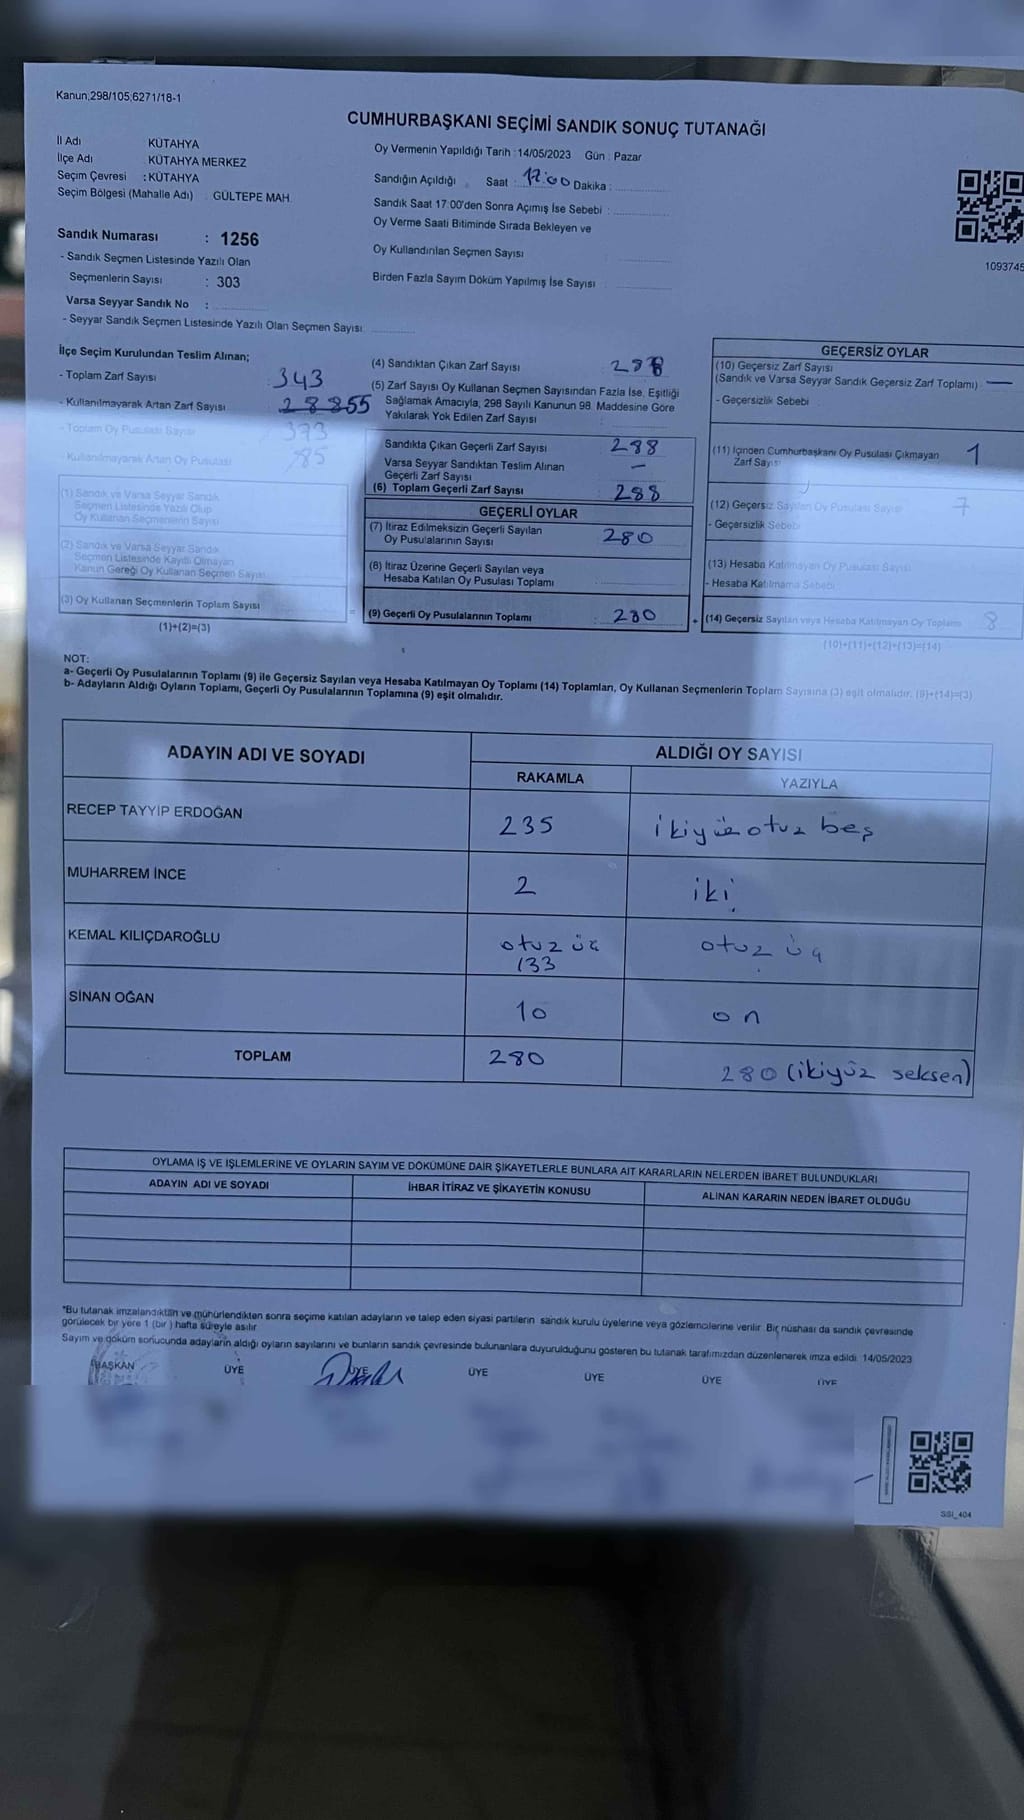 Kanun;298/105,6271/18-1
CUMHURBAŞKANI SEÇİMİ SANDIK SONUÇ TUTANAĞI
İl Adı KÜTAHYA
İlçe Adı KÜTAHYA MERKEZ
Seçim Çevresi : KÜTAHYA
Seçim Bölgesi (Mahalle Adı) GÜLTEPE MAH.
Oy Vermenin Yapıldığı Tarih : 14/05/2023 Gün : Pazar
Sandığın Açıldığı Saat : 17:00 Dakika :
Sandık Saat 17:00'den Sonra Açımış İse Sebebi :
Oy Verme Saati Bitiminde Sırada Bekleyen ve
Oy Kullandırılan Seçmen Sayısı
Birden Fazla Sayım Döküm Yapılmış İse Sayısı :
1093745
Sandık Numarası : 1256
- Sandık Seçmen Listesinde Yazılı Olan
Seçmenlerin Sayısı : 303
Varsa Seyyar Sandık No :
- Seyyar Sandık Seçmen Listesinde Yazılı Olan Seçmen Sayısı
İlçe Seçim Kurulundan Teslim Alınan;
- Toplam Zarf Sayısı : 343
- Kullanılmayarak Artan Zarf Sayısı 55
- Toplam Oy Pusulası Sayısı
- Kullanılmayarak Artan Oy Pusulası
(1) Sandık ve Varsa Seyyar Sandık
Seçmen Listesinde Yazılı Olup
Oy Kullanan Seçmenlerin Sayısı
(2) Sandık ve Varsa Seyyar Sandık
Seçmen Listesinde Kayıtlı Olmayan
Kanun Gereği Oy Kullanan Seçmen Sayısı
(3) Oy Kullanan Seçmenlerin Toplam Sayısı
(1)+(2)=(3)
(4) Sandıktan Çıkan Zarf Sayısı : 288
(5) Zarf Sayısı Oy Kullanan Seçmen Sayısından Fazla İse, Eşitliği
Sağlamak Amacıyla, 298 Sayılı Kanunun 98. Maddesine Göre
Yakılarak Yok Edilen Zarf Sayısı :
Sandıkta Çıkan Geçerli Zarf Sayısı 288
Varsa Seyyar Sandıktan Teslim Alınan
Geçerli Zarf Sayısı —
(6) Toplam Geçerli Zarf Sayısı 288
GEÇERLİ OYLAR
(7) İtiraz Edilmeksizin Geçerli Sayılan
Oy Pusulalarının Sayısı 280
(8) İtiraz Üzerine Geçerli Sayılan veya
Hesaba Katılan Oy Pusulası Toplamı
= (9) Geçerli Oy Pusulalarının Toplamı : 280 +
GEÇERSİZ OYLAR
(10) Geçersiz Zarf Sayısı
(Sandık ve Varsa Seyyar Sandık Geçersiz Zarf Toplamı) : —
- Geçersizlik Sebebi
(11) İçinden Cumhurbaşkanı Oy Pusulası Çıkmayan
Zarf Sayısı 1
(12) Geçersiz Sayılan Oy Pusulası Sayısı 7
- Geçersizlik Sebebi
(13) Hesaba Katılmayan Oy Pusulası Sayısı
- Hesaba Katılmama Sebebi
(14) Geçersiz Sayılan veya Hesaba Katılmayan Oy Toplamı 8
(10)+(11)+(12)+(13)=(14)
NOT:
a- Geçerli Oy Pusulalarının Toplamı (9) ile Geçersiz Sayılan veya Hesaba Katılmayan Oy Toplamı (14) Toplamları, Oy Kullanan Seçmenlerin Toplam Sayısına (3) eşit olmalıdır. (9)+(14)=(3)
b- Adayların Aldığı Oyların Toplamı, Geçerli Oy Pusulalarının Toplamına (9) eşit olmalıdır.
ADAYIN ADI VE SOYADI ALDIĞI OY SAYISI
RAKAMLA YAZIYLA
RECEP TAYYİP ERDOĞAN 235 ikiyüz otuz beş
MUHARREM İNCE 2 iki
KEMAL KILIÇDAROĞLU otuz üç otuz üç
133
SİNAN OĞAN 10 on
TOPLAM 280 280 (ikiyüz seksen)
OYLAMA İŞ VE İŞLEMLERİNE VE OYLARIN SAYIM VE DÖKÜMÜNE DAİR ŞİKAYETLERLE BUNLARA AİT KARARLARIN NELERDEN İBARET BULUNDUKLARI
ADAYIN ADI VE SOYADI İHBAR İTİRAZ VE ŞİKAYETİN KONUSU ALINAN KARARIN NEDEN İBARET OLDUĞU
*Bu tutanak imzalandıktan ve mühürlendikten sonra seçime katılan adayların ve talep eden siyasi partilerin sandık kurulu üyelerine veya gözlemcilerine verilir. Bir nüshası da sandık çevresinde
görülecek bir yere 1 (bir) hafta süreyle asılır.
Sayım ve döküm sonucunda adayların aldığı oyların sayılarını ve bunların sandık çevresinde bulunanlara duyurulduğunu gösteren bu tutanak tarafımızdan düzenlenerek imza edildi. 14/05/2023
BAŞKAN ÜYE ÜYE ÜYE ÜYE ÜYE ÜYE
SSI_404